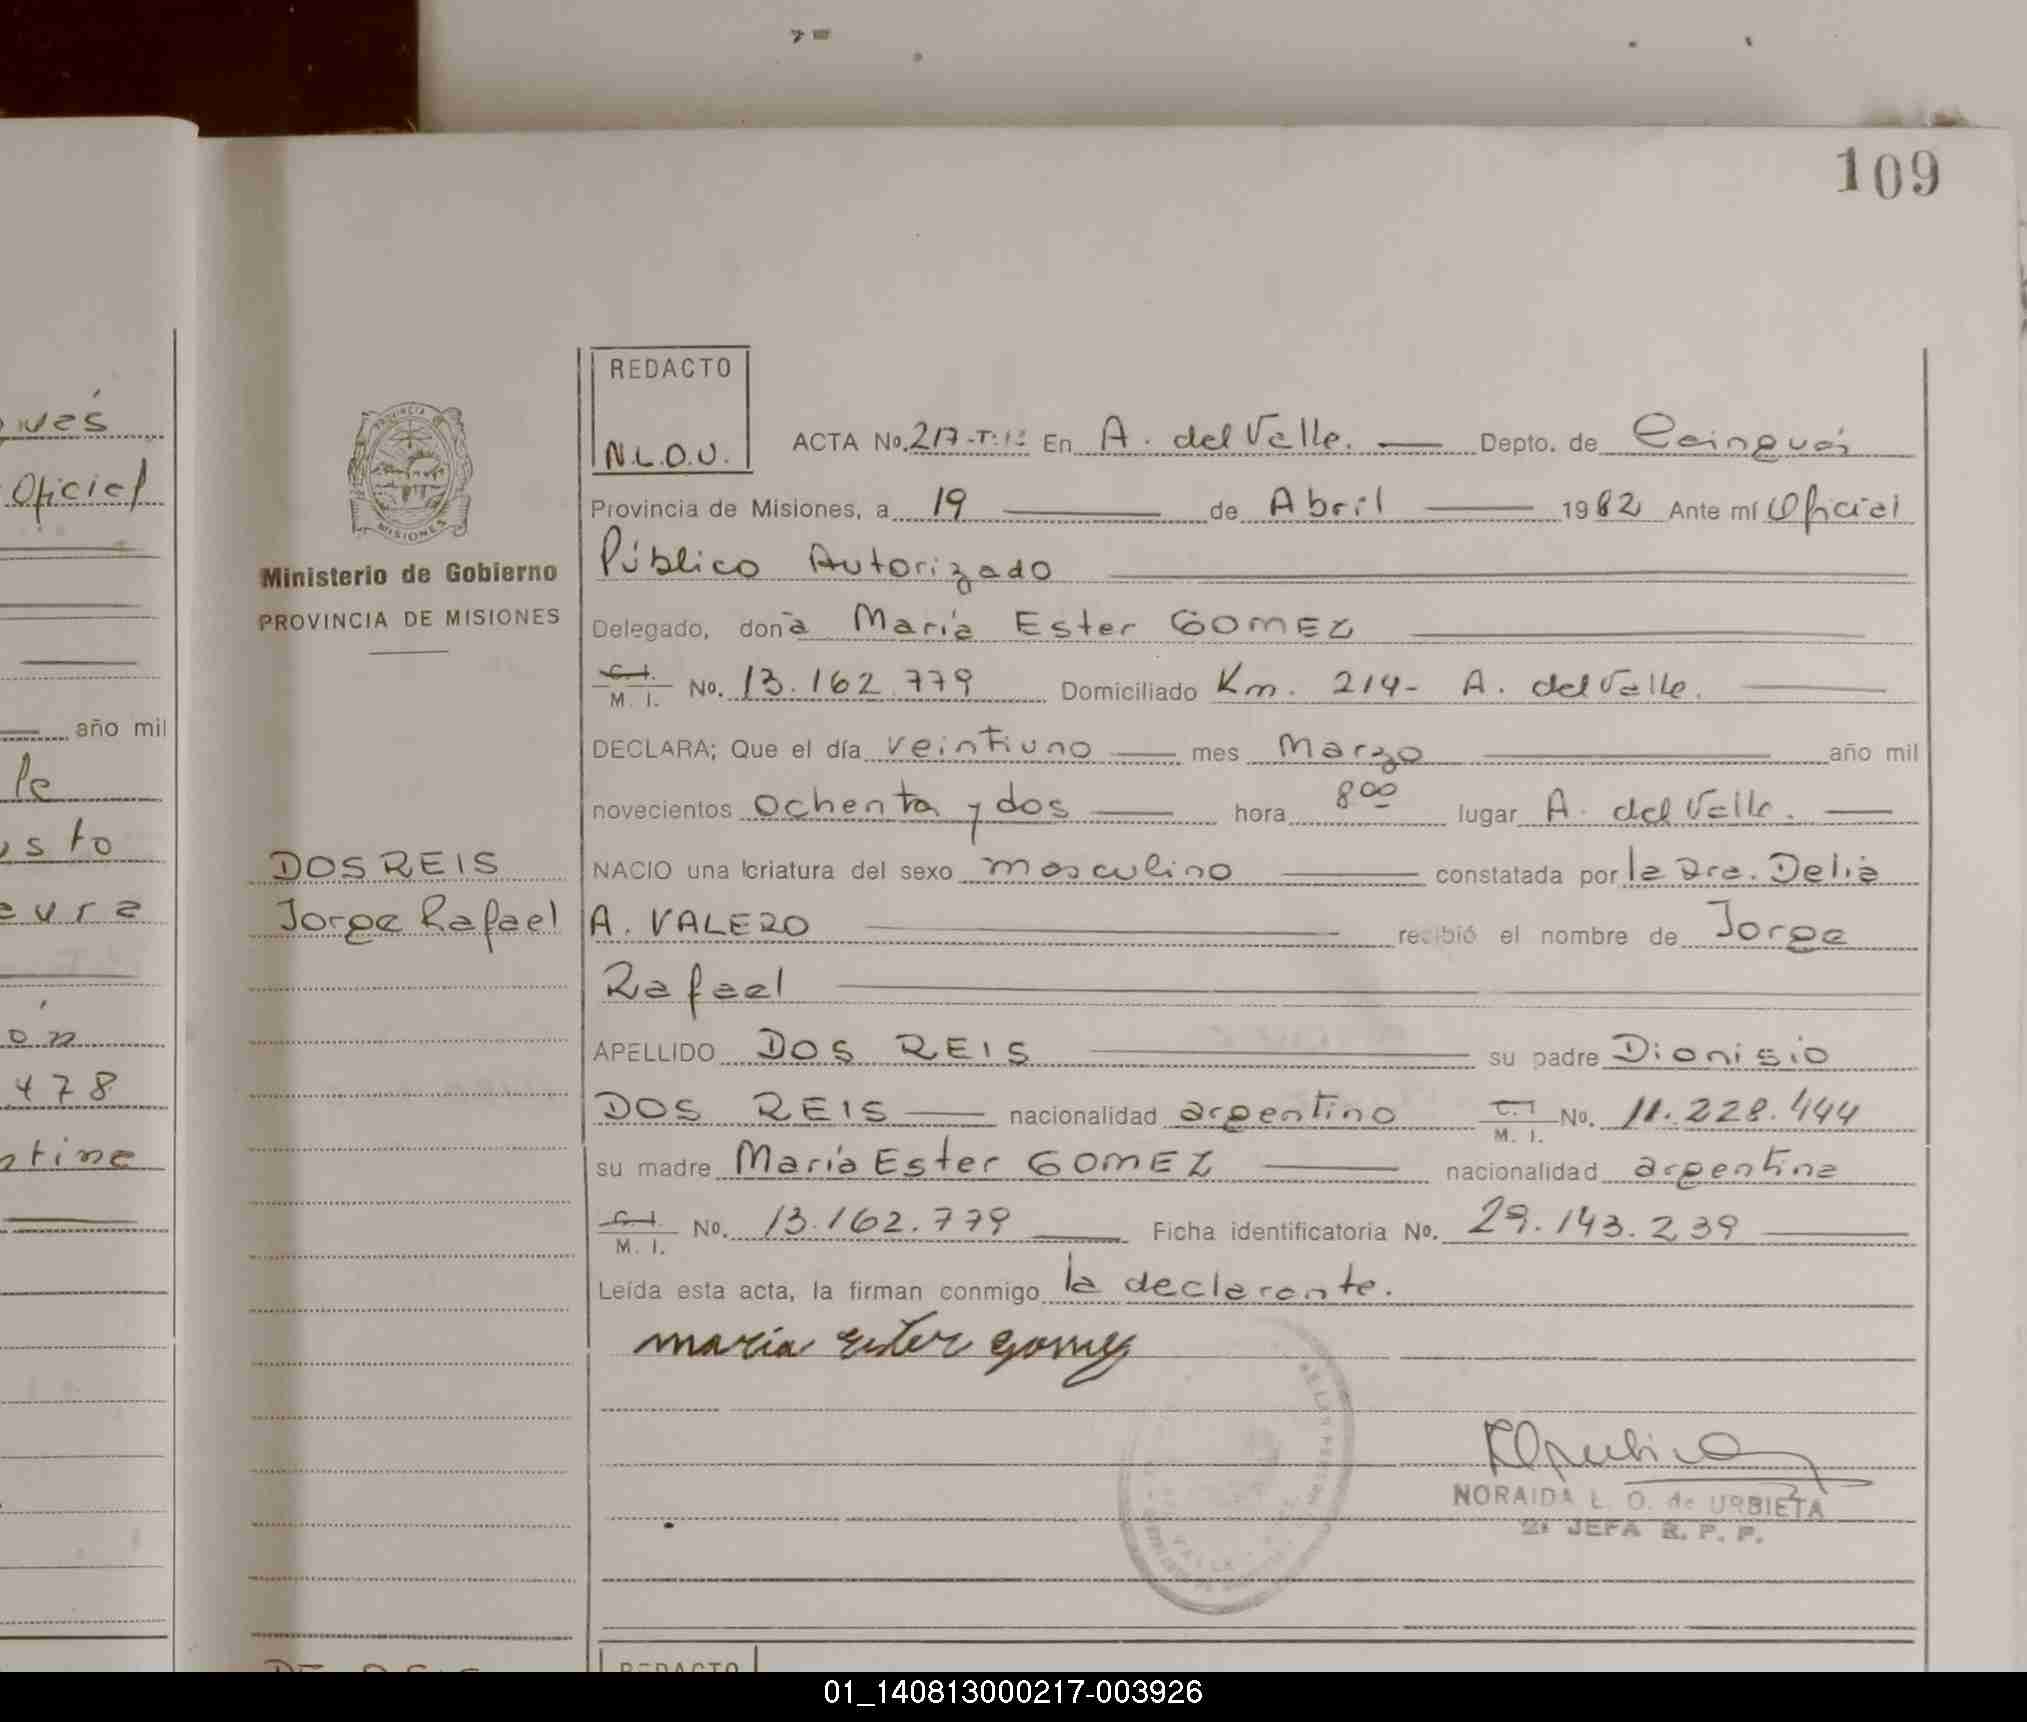 109
REDACTO
N.L.O.U.
ACTA No. 217-T:1º En A. del Valle. Depto. de Cainguás
Provincia de Misiones, a 19 de Abril 1982 Ante mí Oficial
Público Autorizado
Delegado, doña María Ester GOMEZ
C.I. M. I. No. 13.162.779 Domiciliado Km. 214- A. del Valle.
DECLARA; Que el día veintiuno mes Marzo año mil
novecientos ochenta y dos hora 8 00 lugar A. del Valle.
NACIO una criatura del sexo masculino constatada por la Dra. Delia
A. VALERO recibió el nombre de Jorge
Rafael
APELLIDO DOS REIS su padre Dionisio
DOS REIS nacionalidad argentino C.I. M. I. No. 11.228.444
su madre María Ester GOMEZ nacionalidad argentina
C.I. M. I. No. 13.162.779 Ficha identificatoria No. 29.143.239
Leída esta acta, la firman conmigo la declarante.
maria ester gomez
NORAIDA L. O. de URBIETA
2ª JEFA R. P. P.
REDACTO
PROVINCIA
MISIONES
Ministerio de Gobierno
PROVINCIA DE MISIONES
DOS REIS
Jorge Rafael
Oficial
año mil
478
01_140813000217-003926